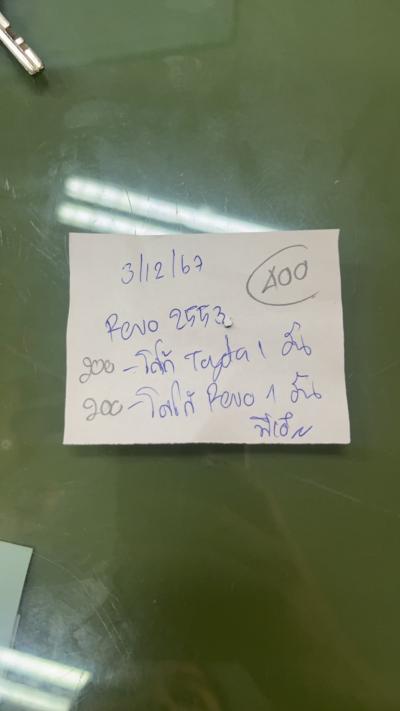 3/12/67
400
Revo 2553
200 - โลโก้ Toyota 1 อัน
200 - โลโก้ Revo 1 อัน